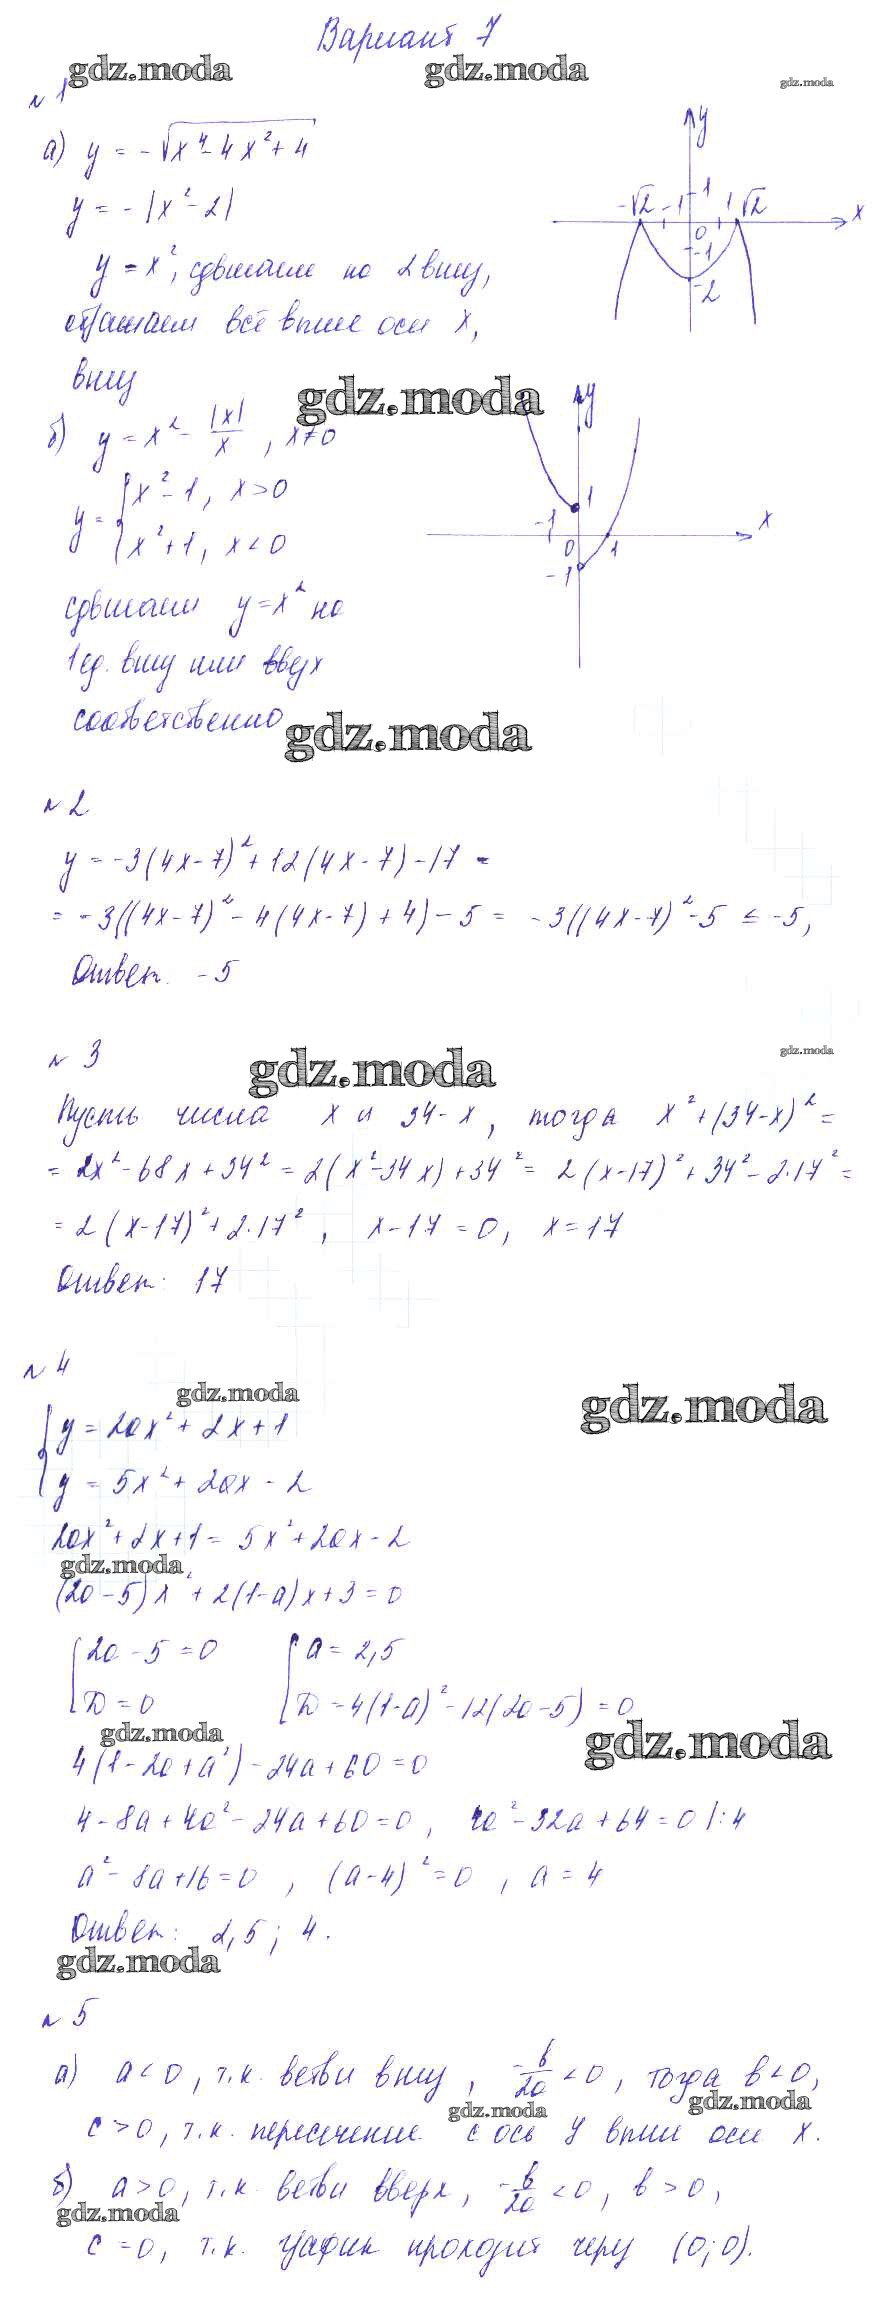 Вариант 7
gdz.moda gdz.moda gdz.moda
№ 1
а) y = -√(x⁴-4x²+4)
y = -|x²-2|
y = x², сдвигаем на 2 вниз,
отражаем всё выше оси x,
вниз
y
-√2 -1 1 1 √2 x
0
-1
-2
gdz.moda
б) y = x² - |x|/x, x≠0
y = { x²-1, x>0
x²+1, x<0
сдвигаем y=x² на
1 ед. вниз или вверх
соответственно
y
1
-1 0 1 x
-1
gdz.moda
№ 2
y = -3(4x-7)²+12(4x-7)-17 =
= -3((4x-7)²-4(4x-7)+4)-5 = -3((4x-7)²-5 ≤ -5,
Ответ. -5
№ 3
gdz.moda gdz.moda
Пусть числа x и 34-x, тогда x²+(34-x)² =
= 2x²-68x+34² = 2(x²-34x)+34² = 2(x-17)²+34²-2·17² =
= 2(x-17)²+2·17², x-17=0, x=17
Ответ: 17
№ 4
gdz.moda gdz.moda
{ y = 2ax²+2x+1
y = 5x²+2ax-2
2ax²+2x+1 = 5x²+2ax-2
gdz.moda
(2a-5)x²+2(1-a)x+3=0
[ 2a-5=0 [ a=2,5
D=0 D=4(1-a)²-12(2a-5)=0
gdz.moda gdz.moda
4(1-2a+a²)-24a+60=0
4-8a+4a²-24a+60=0, 4a²-32a+64=0 |:4
a²-8a+16=0, (a-4)²=0, a=4
Ответ: 2,5; 4.
gdz.moda
№ 5
а) a<0, т.к. ветви вниз, -b/2a<0, тогда b<0,
gdz.moda gdz.moda
c>0, т.к. пересечение с ось y выше оси x.
б) a>0, т.к. ветви вверх, -b/2a<0, b>0,
gdz.moda
c=0, т.к. график проходит через (0;0).